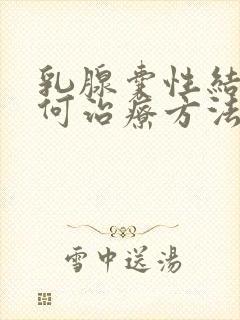 乳腺囊性結
何治療方法
雪中送湯